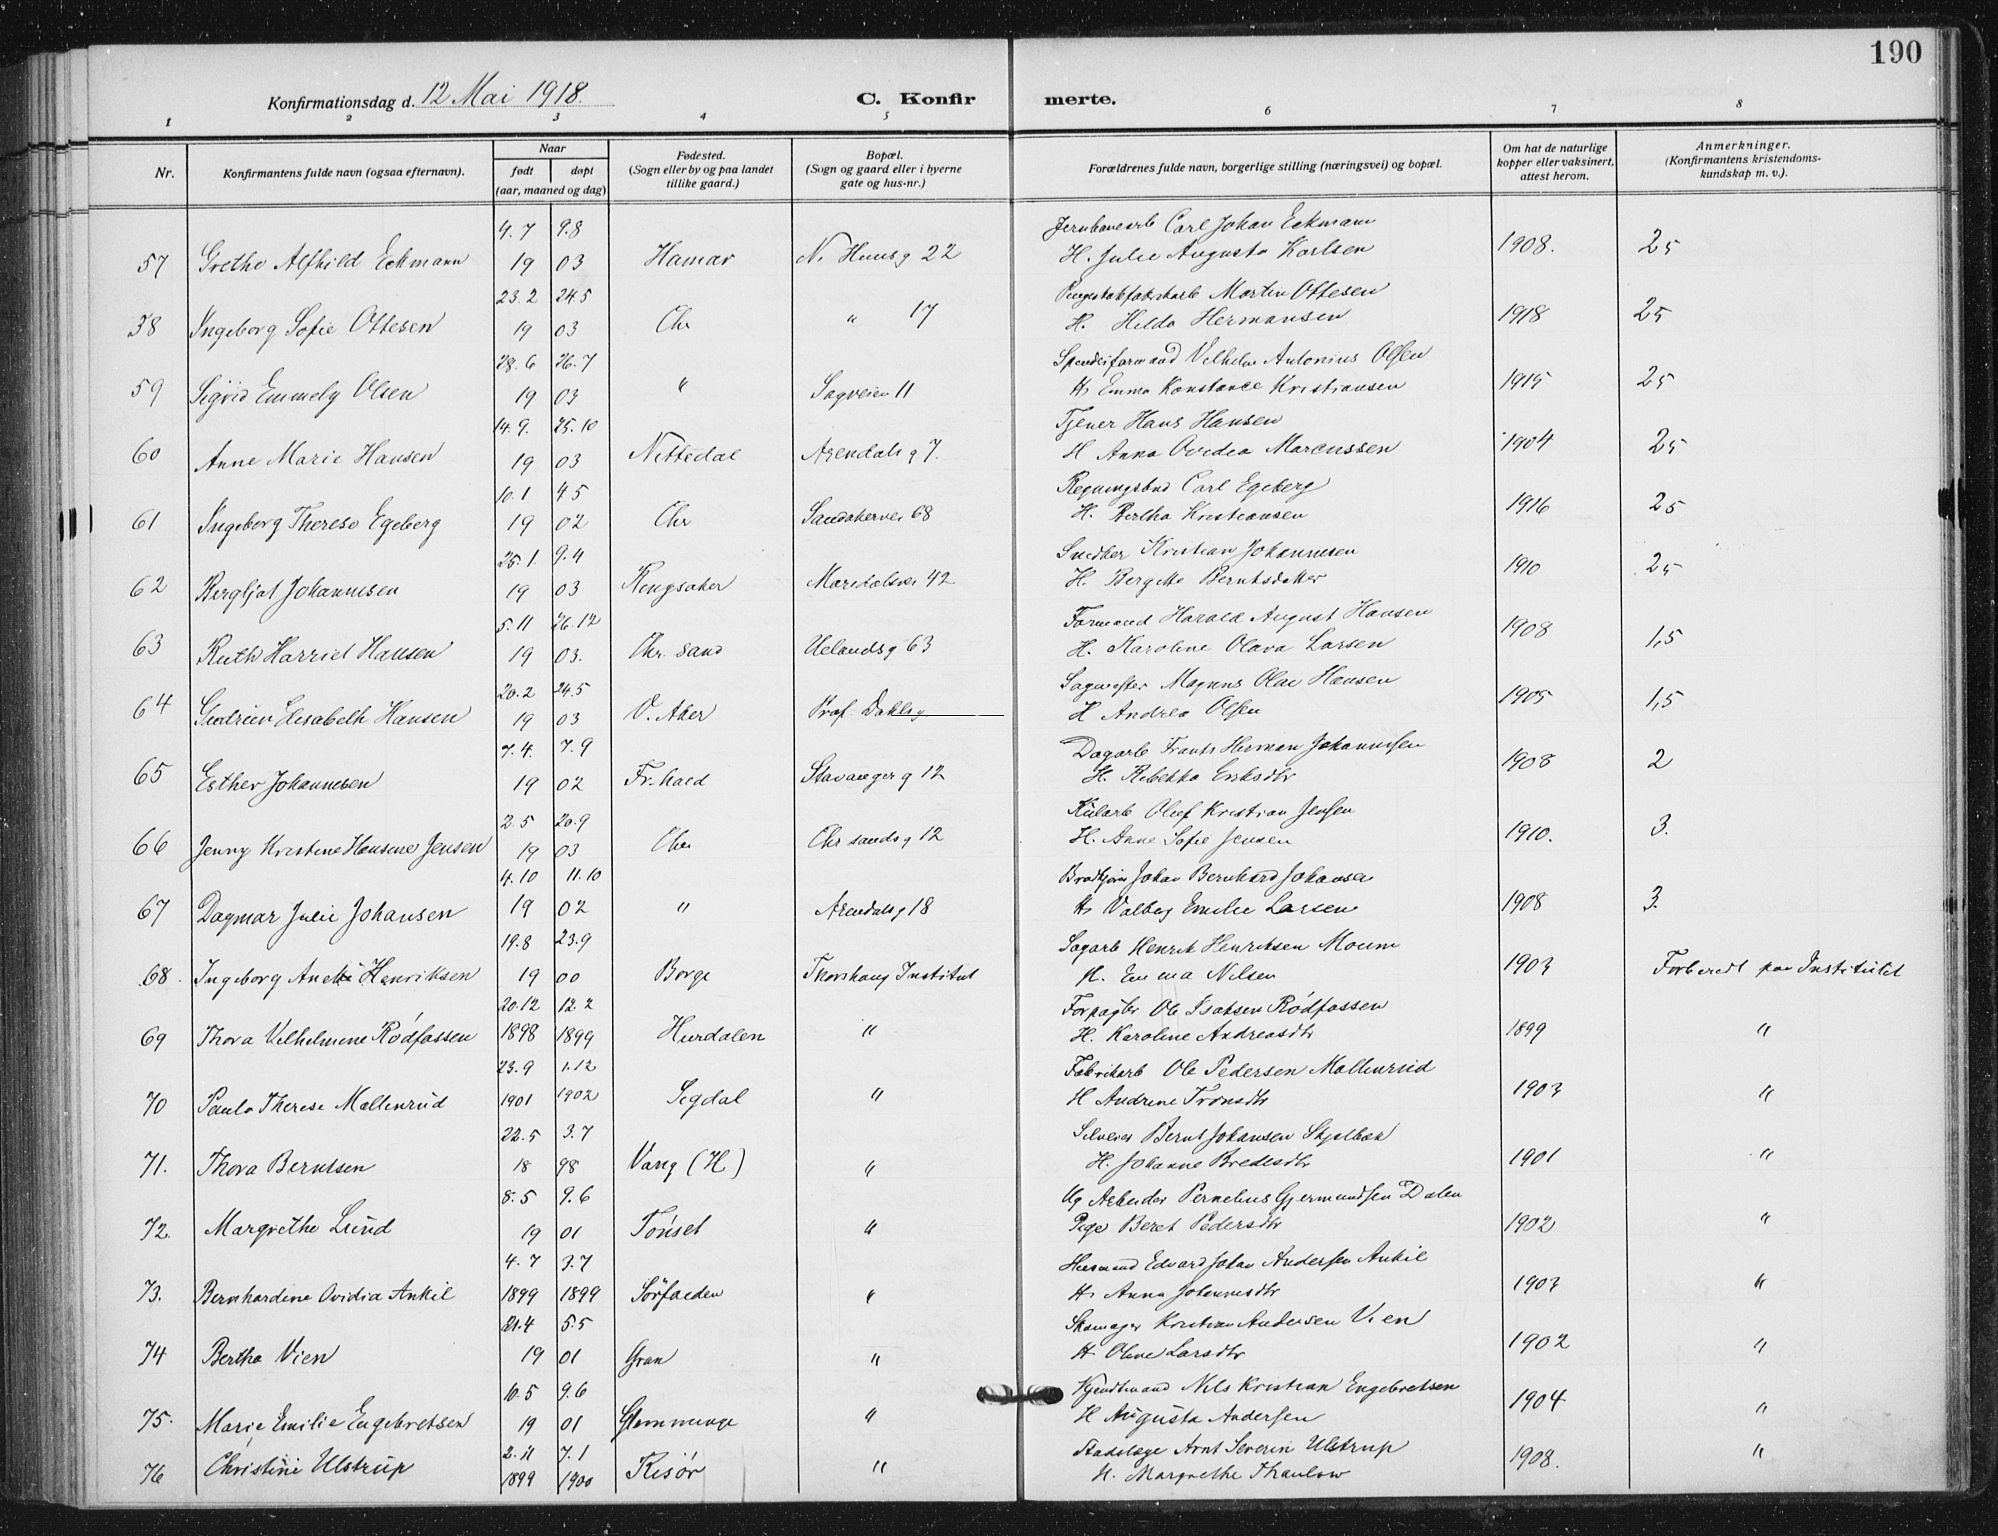 190
Konfirmationsdag d. 12 Mai 1918. C. Konfirmerte.
1 2 3 4 5 6 7 8
Nr. Konfirmantens fulde navn (ogsaa efternavn). Naar født døpt (aar, maaned og dag) Fødested. (Sogn eller by og paa landet tillike gaard.) Bopæl. (Sogn og gaard eller i byerne gate og hus-nr.) Forældrenes fulde navn, borgerlige stilling (næringsvei) og bopæl. Om hat de naturlige kopper eller vaksinert, attest herom. Anmerkninger. (Konfirmantens kristendoms-kundskap m. v.).
4.7 9.8 Jernbanearb Carl Johan Eckmann
57 Grethe Alfhild Eckmann 19 03 Hamar N. Huusg 22 H. Julie Augusta Karlsen 1908. 25
23.2 24.5 Martin Ottesen
58 Ingeborg Sofie Ottesen 19 03 Chr " 17 H. Hilda Hermansen 1918 25
28.6 26.7 Vilhelm Antonius Olsen
59 Sigrid Emmely Olsen 19 03 " Sagveien 11 H. Emma Konstance Kristiansen 1915 25
14.9. 25.10 Tjener Hans Hansen
60 Anne Marie Hansen 19 03 Nittedal Arendalsg 7. H Anna Ovidia Marcussen 1904 25
10.1 4.5 Regningsbud Carl Egeberg
61 Ingeborg Therese Egeberg 19 02 Chr Sandakerve 68 H. Bertha Kristiansen 1916 25
25.1. 9.4 Snedker Kristian Johannesen
62 Bergljot Johannesen 19 03 Ringsaker Maridalsvei 42 H. Bergitte Berntsdatter 1910 25
5.11 26.12 Formand Harald August Hansen
63 Ruth Harriet Hansen 19 03. Chr. sand Uelandsg 63 H. Karoline Olava Larsen 1908 1,5
20.2 24.5 Sagmester Magnus Olai Hansen
64 Gudrun Elisabeth Hansen 19 03 V. Aker Prof. Dahlsg H Andrea Olsen 1905 1,5
7.4. 7.9 Dagarb Frants Herman Johannesen
65 Esther Johannesen 19 02 Fr.hald Stavangerg 12 H. Rebekka Eriksdtr 1908 2
2.5 20.9 Kularb Oluf Kristian Jensen
66 Jenny Kristine Hansine Jensen 19 03 Chr Chr sandsg 12 H. Anne Sofie Jensen 1910. 3.
4.10 11.10 Johan Bernhard Johansen
67 Dagmar Julie Johansen 19 02 " Arendalsg 18 H. Valborg Emilie Larsen 1908 3.
19.8 23.9 Sagarb Henrik Henriksen Moum
68. Ingeborg Henriksen 19 00 Borge Thorshaug Institut H. Emma Nilsen 1903 Forberedt paa Institutet
20.12 12.2 Forpagter Ole Isaksen Rödfossen
69 Thora Vilhelmine Rödfossen 1898 1899 Hurdalen " H. Karoline Andreasdtr 1899 "
23.9 1.12 Fabrikarb Ole Pedersen Mollenrud
70 Paula Therese Mollenrud 1901 1902 Sigdal " H Andrine Tronsdtr 1903 "
22.5 3.7 Selveier Bernt Johansen Skjelbæk
71. Thora Berntsen 18 98 Vang (H) " H. Johanne Bredesdtr 1901 "
8.5 9.6 Ug Arbeider Pernelius Gjermundsen Dalen
72. Margrethe Lund 19 01 Tönset " Pige Beret Pedersdtr 1902 "
4.7 3.7 Husmand Edvard Johan Andersen Ankil
73. Bernhardine Ovidia Ankil 1899 1899 Sörfolden " H. Anna Johannesdtr 1903 "
21.4 5.5 Skomager Kristian Andersen Vien
74 Bertha Vien 19 01 Gran " H. Oline Larsdtr 1902 "
10.5 9.6 Nils Kristian Engebretsen
75. Marie Emilie Engebretsen 19 01 Glemminge " H Augusta Andersen 1904 "
2.11 7.1 Stadslæge Arnt Severin Ulstrup
76 Christine Ulstrup 1899 1900 Risør " H. Margrethe Thaulow 1908. "